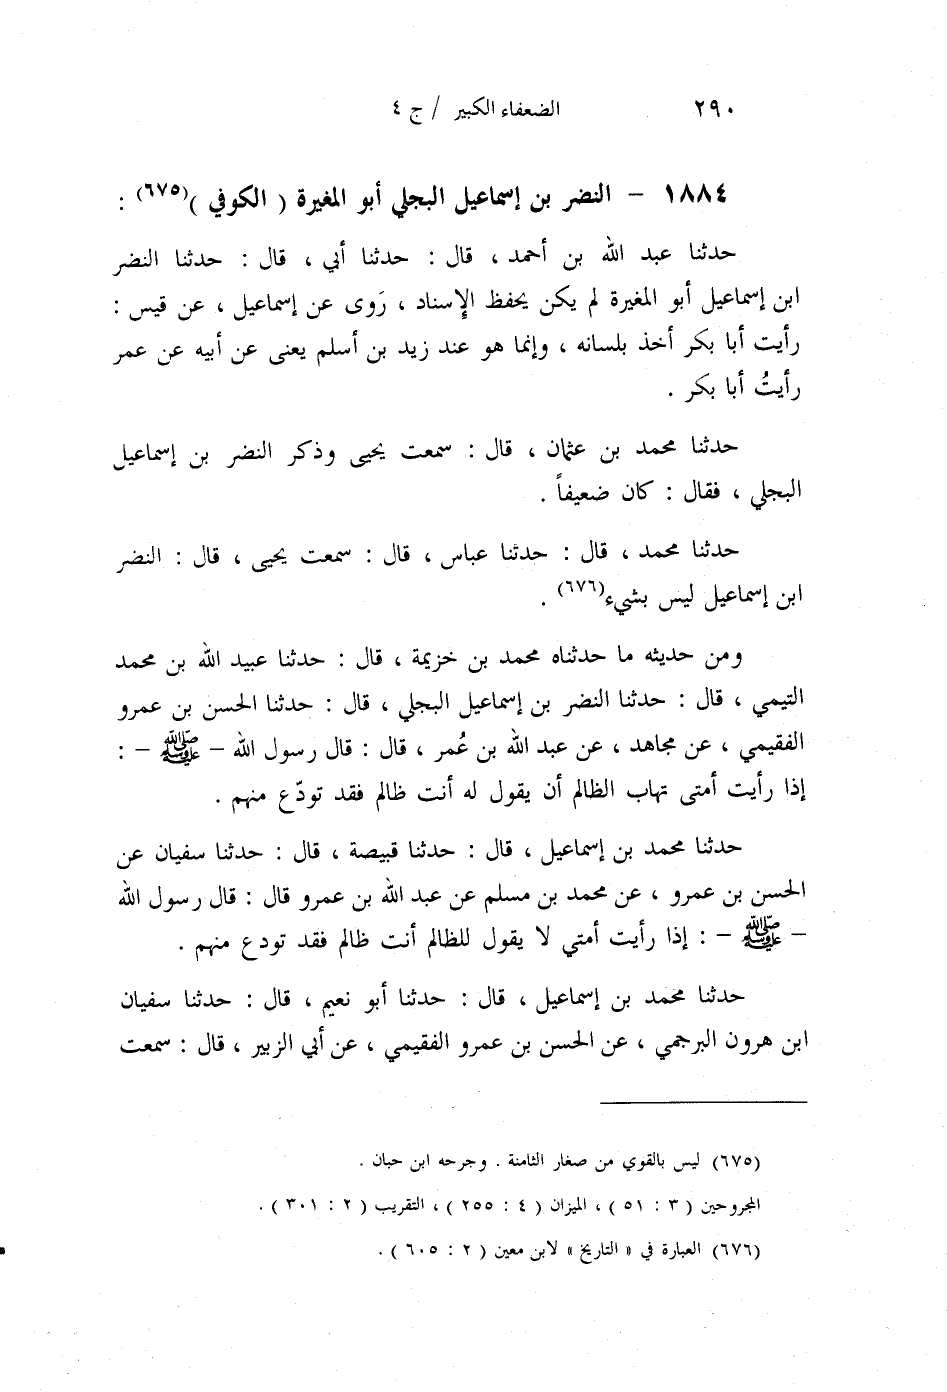 ٢٩٠ الضعفاء الكبير / ج ٤
١٨٨٤ - النضر بن إسماعيل البجلي أبو المغيرة ( الكوفي )(٦٧٥) :
حدثنا عبد الله بن أحمد ، قال : حدثنا أبي ، قال : حدثنا النضر
ابن إسماعيل أبو المغيرة لم يكن يحفظ الإسناد ، رَوى عن إسماعيل ، عن قيس :
رأيت أبا بكر أخذ بلسانه ، وإنما هو عند زيد بن أسلم يعنى عن أبيه عن عمر
رأيتُ أبا بكر .
حدثنا محمد بن عثمان ، قال : سمعت يحيى وذكر النضر بن إسماعيل
البجلي ، فقال : كان ضعيفاً .
حدثنا محمد ، قال : حدثنا عباس ، قال : سمعت يحيى ، قال : النضر
ابن إسماعيل ليس بشيء(٦٧٦) .
ومن حديثه ما حدثناه محمد بن خزيمة ، قال : حدثنا عبيد الله بن محمد
التيمي ، قال : حدثنا النضر بن إسماعيل البجلي ، قال : حدثنا الحسن بن عمرو
الفقيمي ، عن مجاهد ، عن عبد الله بن عُمر ، قال : قال رسول الله - ﷺ - :
إذا رأيت أمتى تهاب الظالم أن يقول له أنت ظالم فقد تودّع منهم .
حدثنا محمد بن إسماعيل ، قال : حدثنا قبيصة ، قال : حدثنا سفيان عن
الحسن بن عمرو ، عن محمد بن مسلم عن عبد الله بن عمرو قال : قال رسول الله
- ﷺ - : إذا رأيت أمتي لا يقول للظالم أنت ظالم فقد تودع منهم .
حدثنا محمد بن إسماعيل ، قال : حدثنا أبو نعيم ، قال : حدثنا سفيان
ابن هرون البرجمي ، عن الحسن بن عمرو الفقيمي ، عن أبي الزبير ، قال : سمعت
(٦٧٥) ليس بالقوي من صغار الثامنة . وجرحه ابن حبان .
المجروحين ( ٣ : ٥١ ) ، الميزان ( ٤ : ٢٥٥ ) ، التقريب ( ٢ : ٣٠١ ) .
(٦٧٦) العبارة في « التاريخ » لابن معين ( ٢ : ٦٠٥ ) .